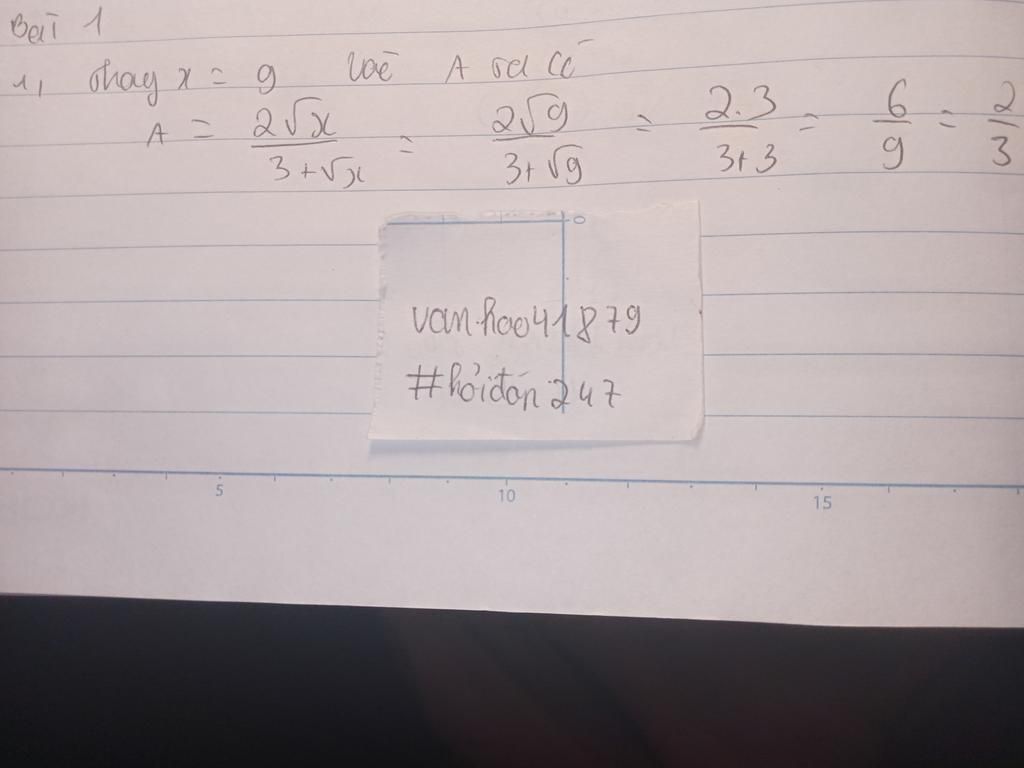 Bài 1
1, thay x = 9 vào A ta có
A = 2√x / 3+√x = 2√9 / 3+√9 = 2.3 / 3+3 = 6/9 = 2/3
vanhoo41879
#hỏiđán247
5 10 15